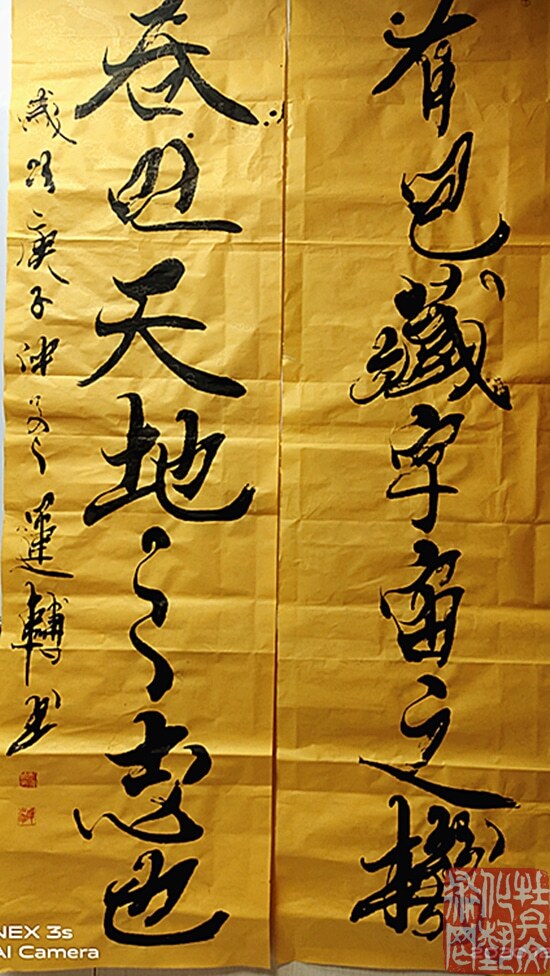 有包藏宇宙之機
吞吐天地之志也
歲次庚子
運轉書
NEX 3s
AI Camera